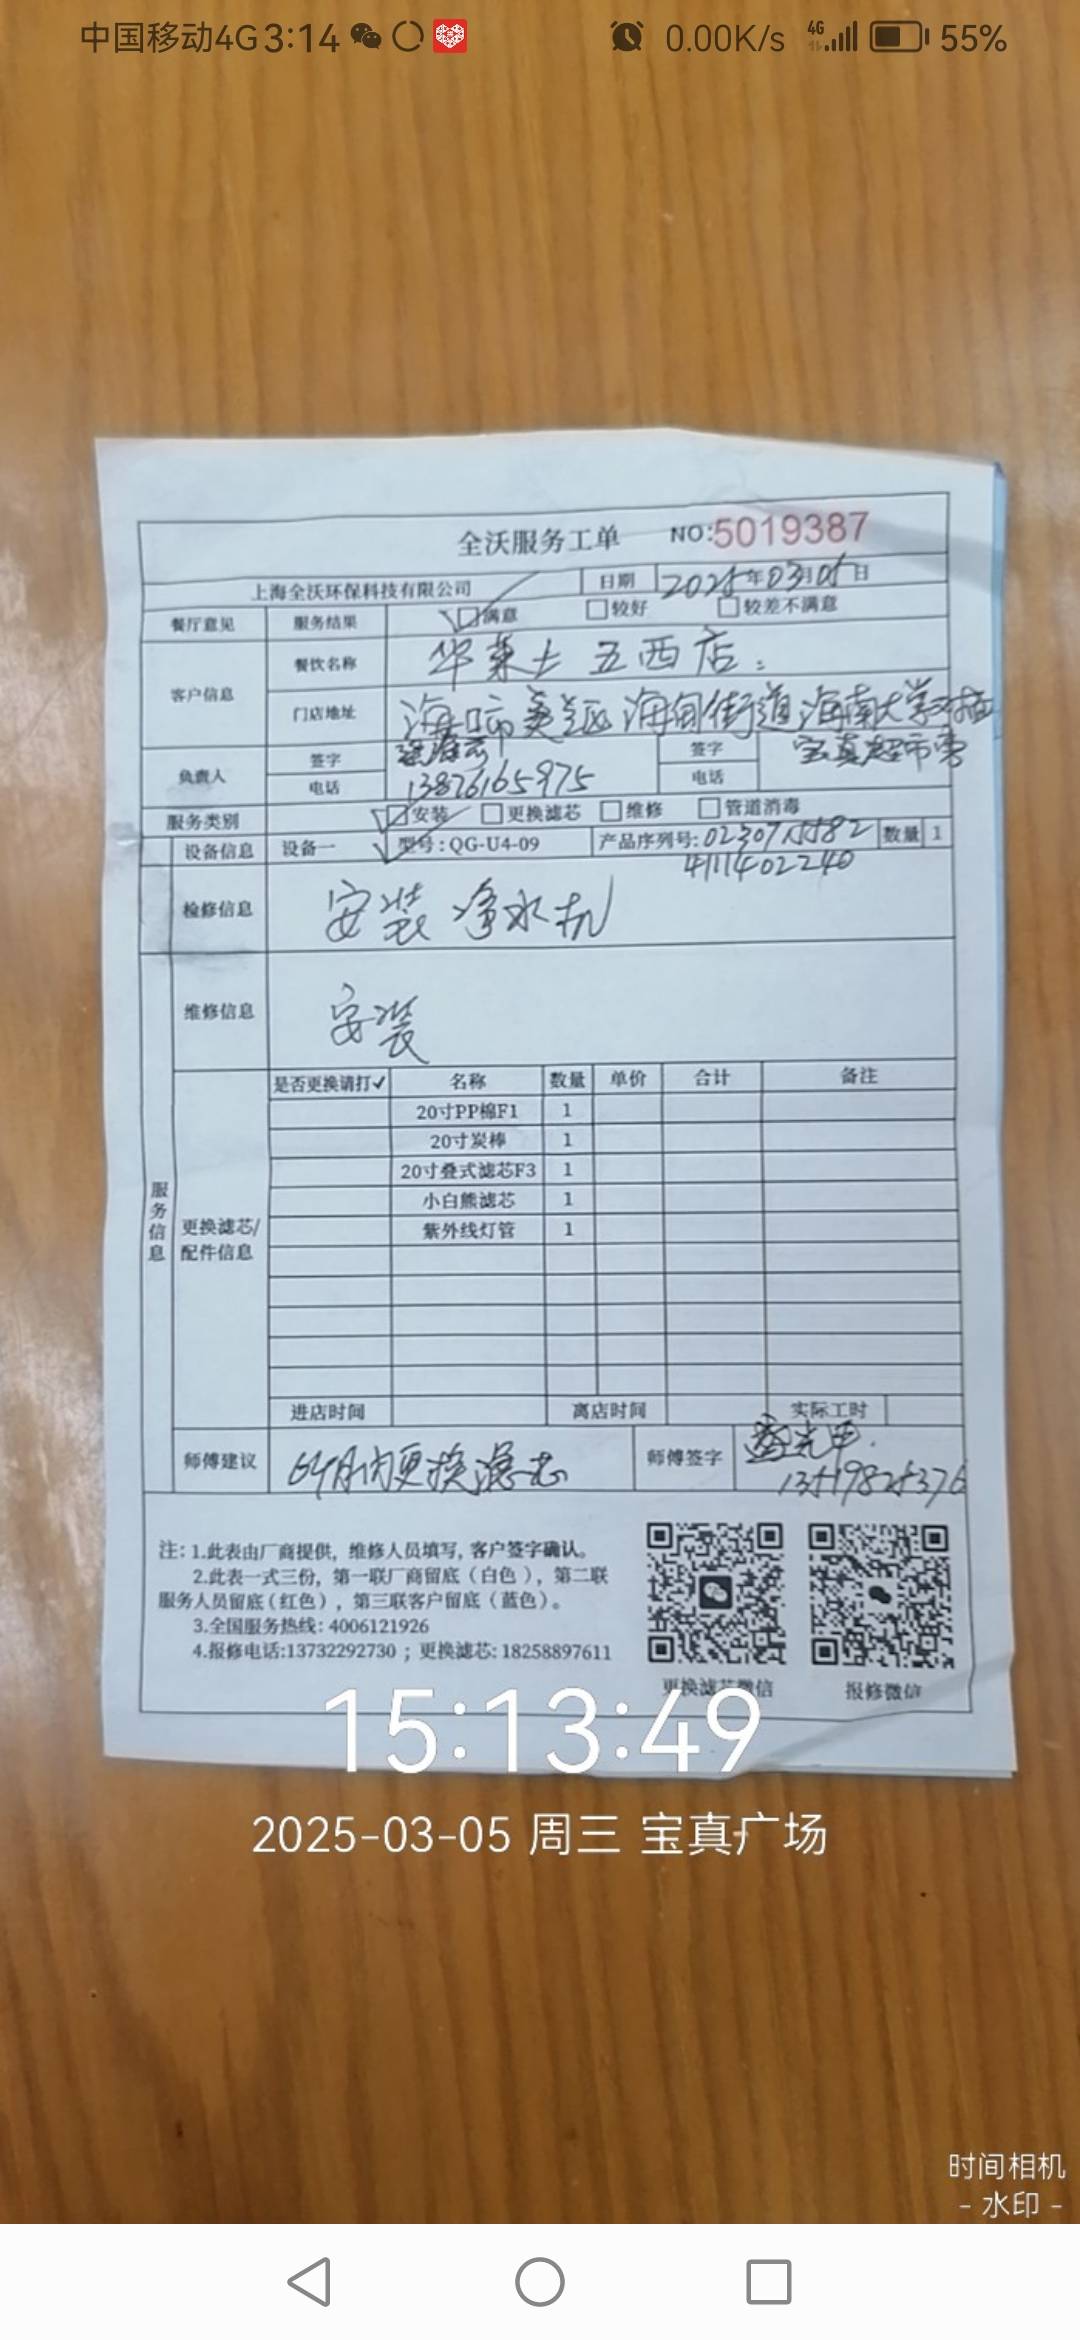 中国移动4G 3:14 0.00K/s 4G 55%
全沃服务工单 NO:5019387
上海全沃环保科技有限公司 日期 2025年03月05日
餐厅意见 服务结果 满意 较好 较差不满意
客户信息 餐饮名称 华莱士五西店
门店地址 海口市美兰区海甸街道海南大学对面
宝真超市旁
负责人 签字 签字
电话 13876165975 电话
服务类别 安装 更换滤芯 维修 管道消毒
设备信息 设备一 型号:QG-U4-09 产品序列号: 数量 1
41111402240
检修信息 安装净水机
维修信息 安装
是否更换请打✓ 名称 数量 单价 合计 备注
20寸PP棉F1 1
20寸炭棒 1
20寸叠式滤芯F3 1
小白熊滤芯 1
紫外线灯管 1
服务信息
更换滤芯/
配件信息
进店时间 离店时间 实际工时
师傅建议 6个月内更换滤芯 师傅签字
13519825376
注:1.此表由厂商提供,维修人员填写,客户签字确认。
2.此表一式三份,第一联厂商留底(白色),第二联
服务人员留底(红色),第三联客户留底(蓝色)。
3.全国服务热线:4006121926
4.报修电话:13732292730;更换滤芯:18258897611
更换滤芯微信 报修微信
15:13:49
2025-03-05 周三 宝真广场
时间相机
- 水印 -